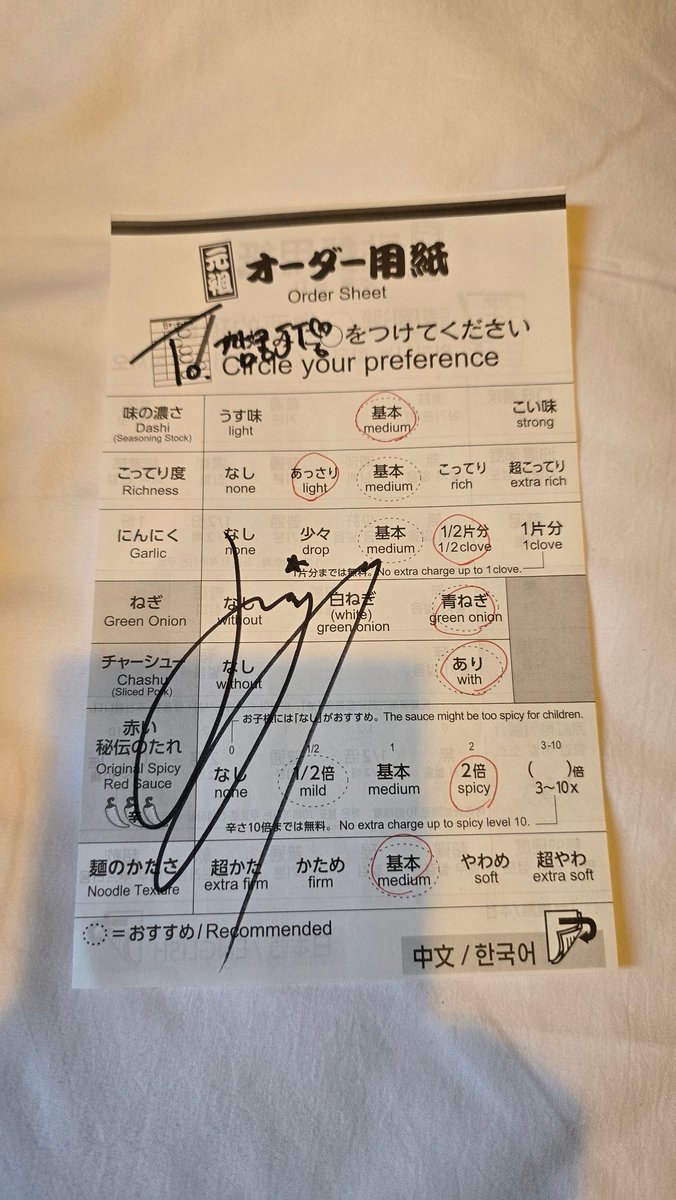 元祖 オーダー用紙
Order Sheet
To. ○をつけてください
Circle your preference
味の濃さ うす味 基本 こい味
Dashi light medium strong
(Seasoning Stock)
こってり度 なし あっさり 基本 こってり 超こってり
Richness none light medium rich extra rich
にんにく なし 少々 基本 1/2片分 1片分
Garlic none drop medium 1/2 clove 1clove
1片分までは無料。No extra charge up to 1 clove.
ねぎ なし 白ねぎ 青ねぎ
Green Onion without (white) green onion
green onion
チャーシュー なし あり
Chashu without with
(Sliced Pork)
お子様には「なし」がおすすめ。The sauce might be too spicy for children.
赤い 0 1/2 1 2 3-10
秘伝のたれ なし 1/2倍 基本 2倍 ( )倍
Original Spicy none mild medium spicy 3~10x
Red Sauce
辛 辛さ10倍までは無料。 No extra charge up to spicy level 10.
麺のかたさ 超かた かため 基本 やわめ 超やわ
Noodle Texture extra firm firm medium soft extra soft
=おすすめ/Recommended
中文 / 한국어